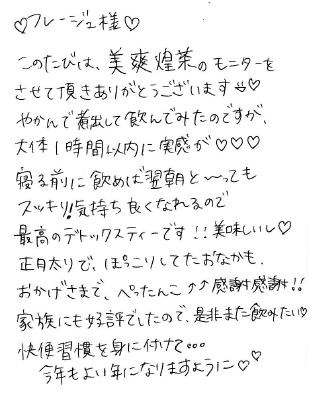 ♡フレージュ様♡
このたびは、美爽煌茶のモニターを
させて頂きありがとうございます♡
やかんで煮出して飲んでみたのですが、
大体1時間以内に実感が♡♡♡
寝る前に飲めば翌朝と〜っても
スッキリ!!気持ち良くなれるので
最高のデトックスティーです!!美味しいし♡
正月太りで、ぽっこりしてたおなかも、
おかげさまで、ぺったんこ↑↑感謝感謝!!
家族にも好評でしたので、是非また飲みたい♡
快便習慣を身に付けて…
今年もよい年になりますように♡♡